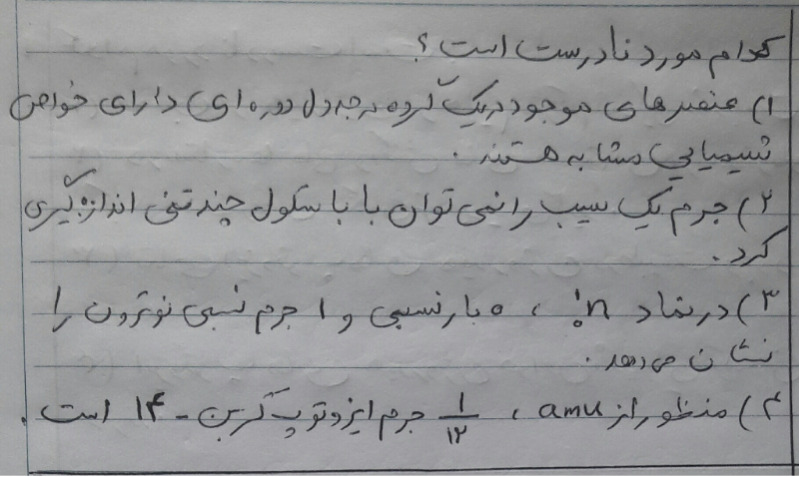 کدام مورد نادرست است؟
۱) عنصرهای موجود در یک گروه در جدول دوره ای دارای خواص
شیمیایی مشابه هستند.
۲) جرم یک سیب را نمی توان با باسکول چند تنی اندازه گیری
کرد.
۳) در نماد ¹₀n ، ۰ بار نسبی و ۱ جرم نسبی نوترون را
نشان می دهد.
۴) منظور از amu ، ۱/۱۲ جرم ایزوتوپ کربن - ۱۴ است.